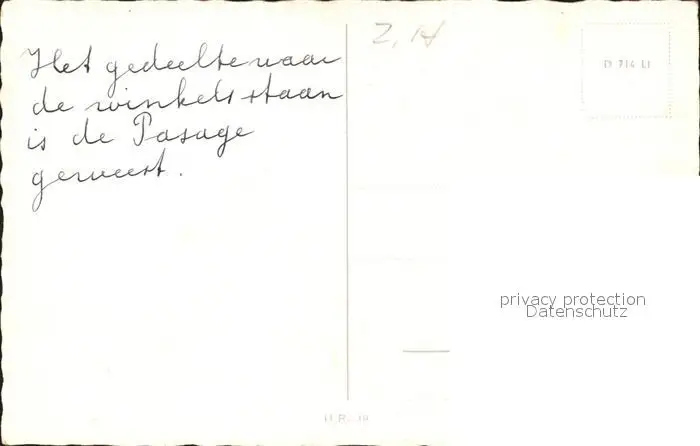 Het gedeelte waar
de winkels staan
is de Pasage
geweest.
Z, H
D 714 LI
privacy protection
Datenschutz